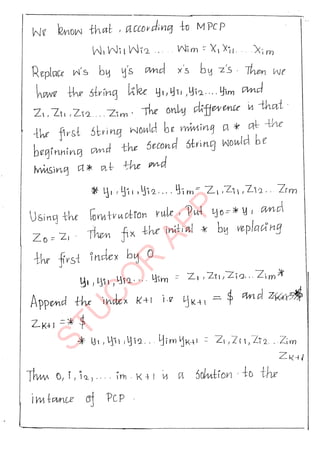 We know that, according to MPCP
W1 Wi1 Wi2 .... Wim = X1 Xi1 .... Xim
Replace w's by y's and x's by z's. Then we
have the string like y1, yi1, yi2....yim and
Z1, Zi1, Zi2....Zim. The only difference is that
the first string would be mining a * at the
beginning and the second string would be
missing a* at the end
* y1, yi1, yi2.... yim = Z1, Zi1, Zi2.. Zim
Using the Construction rule, Put y0=* y1 and
Z0 = Z1. Then fix the initial * by replacing
the first index by 0
y1, yi1, yi2.... yim = Z1, Zi1, Zi2...Zim*
Append the index K+1 i.e yK+1 = $ and
ZK+1 =* $
* y1, yi1, yi2... yim yK+1 = Z1, Zi1, Zi2.. Zim
ZK+1
Thus 0, i, i2, .... im. K+1 is a solution to the
instance of PCP.
STUCOR APP